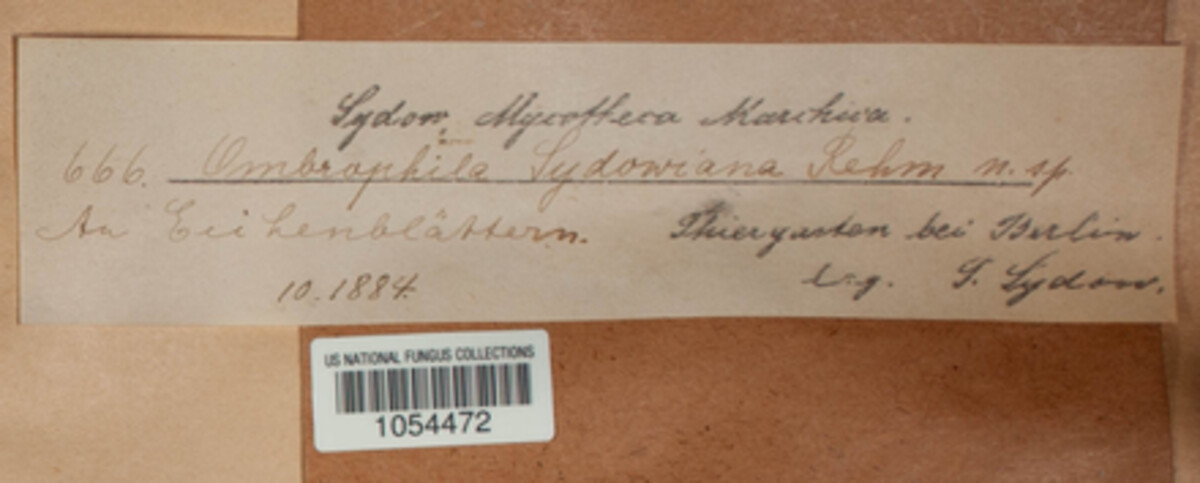 Sydow, Mycotheca Marchica.
666. Ombrophila Sydowiana Rehm n. sp.
An Eichenblättern. Thiergarten bei Berlin.
10.1884. leg. P. Sydow.
US NATIONAL FUNGUS COLLECTIONS
1054472